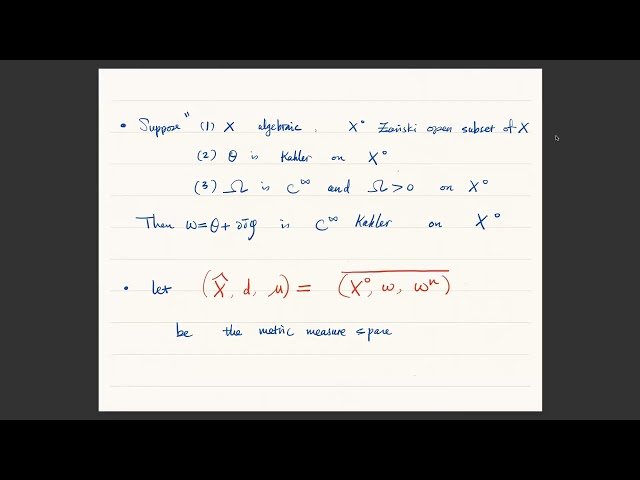 • Suppose" (1) X algebraic, X° Zariski open subset of X
(2) θ is Kahler on X°
(3) Ω is C^∞ and Ω>0 on X°
Then ω=θ+∂∂̄φ is C^∞ Kahler on X°
• let (X̂, d, μ) = \overline{(X°, ω, ω^n)}
be the metric measure space